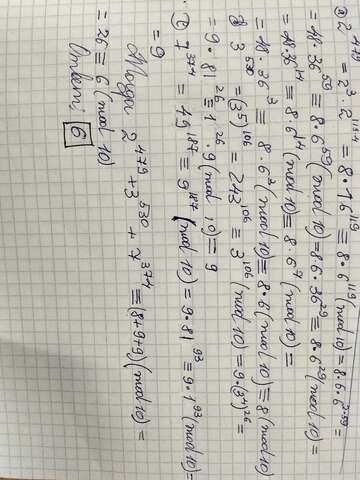 2^479 = 2^3 · 2^(4·119) = 8·16^119 ≡ 8·6^119 (mod 10) = 8·6·6^(2·59) =
= 48·36^59 ≡ 8·6^59 (mod 10) = 8·6·36^29 ≡ 8·6^29 (mod 10) =
= 48·36^14 ≡ 8·6^14 (mod 10) ≡ 8·6^7 (mod 10) =
= 48·36^3 ≡ 8·6^3 (mod 10) ≡ 8·6 (mod 10) ≡ 8 (mod 10)
3^530 = (3^5)^106 = 243^106 ≡ 3^106 (mod 10) = 9·(3^4)^26 =
= 9·81^26 ≡ 1^26·9 (mod 10) = 9
7^374 = 49^187 ≡ 9^187 (mod 10) = 9·81^93 ≡ 9·1^93 (mod 10) =
= 9
Тогда 2^479 + 3^530 + 7^374 ≡ (8+9+9) (mod 10) =
= 26 ≡ 6 (mod 10)
Ответ: 6